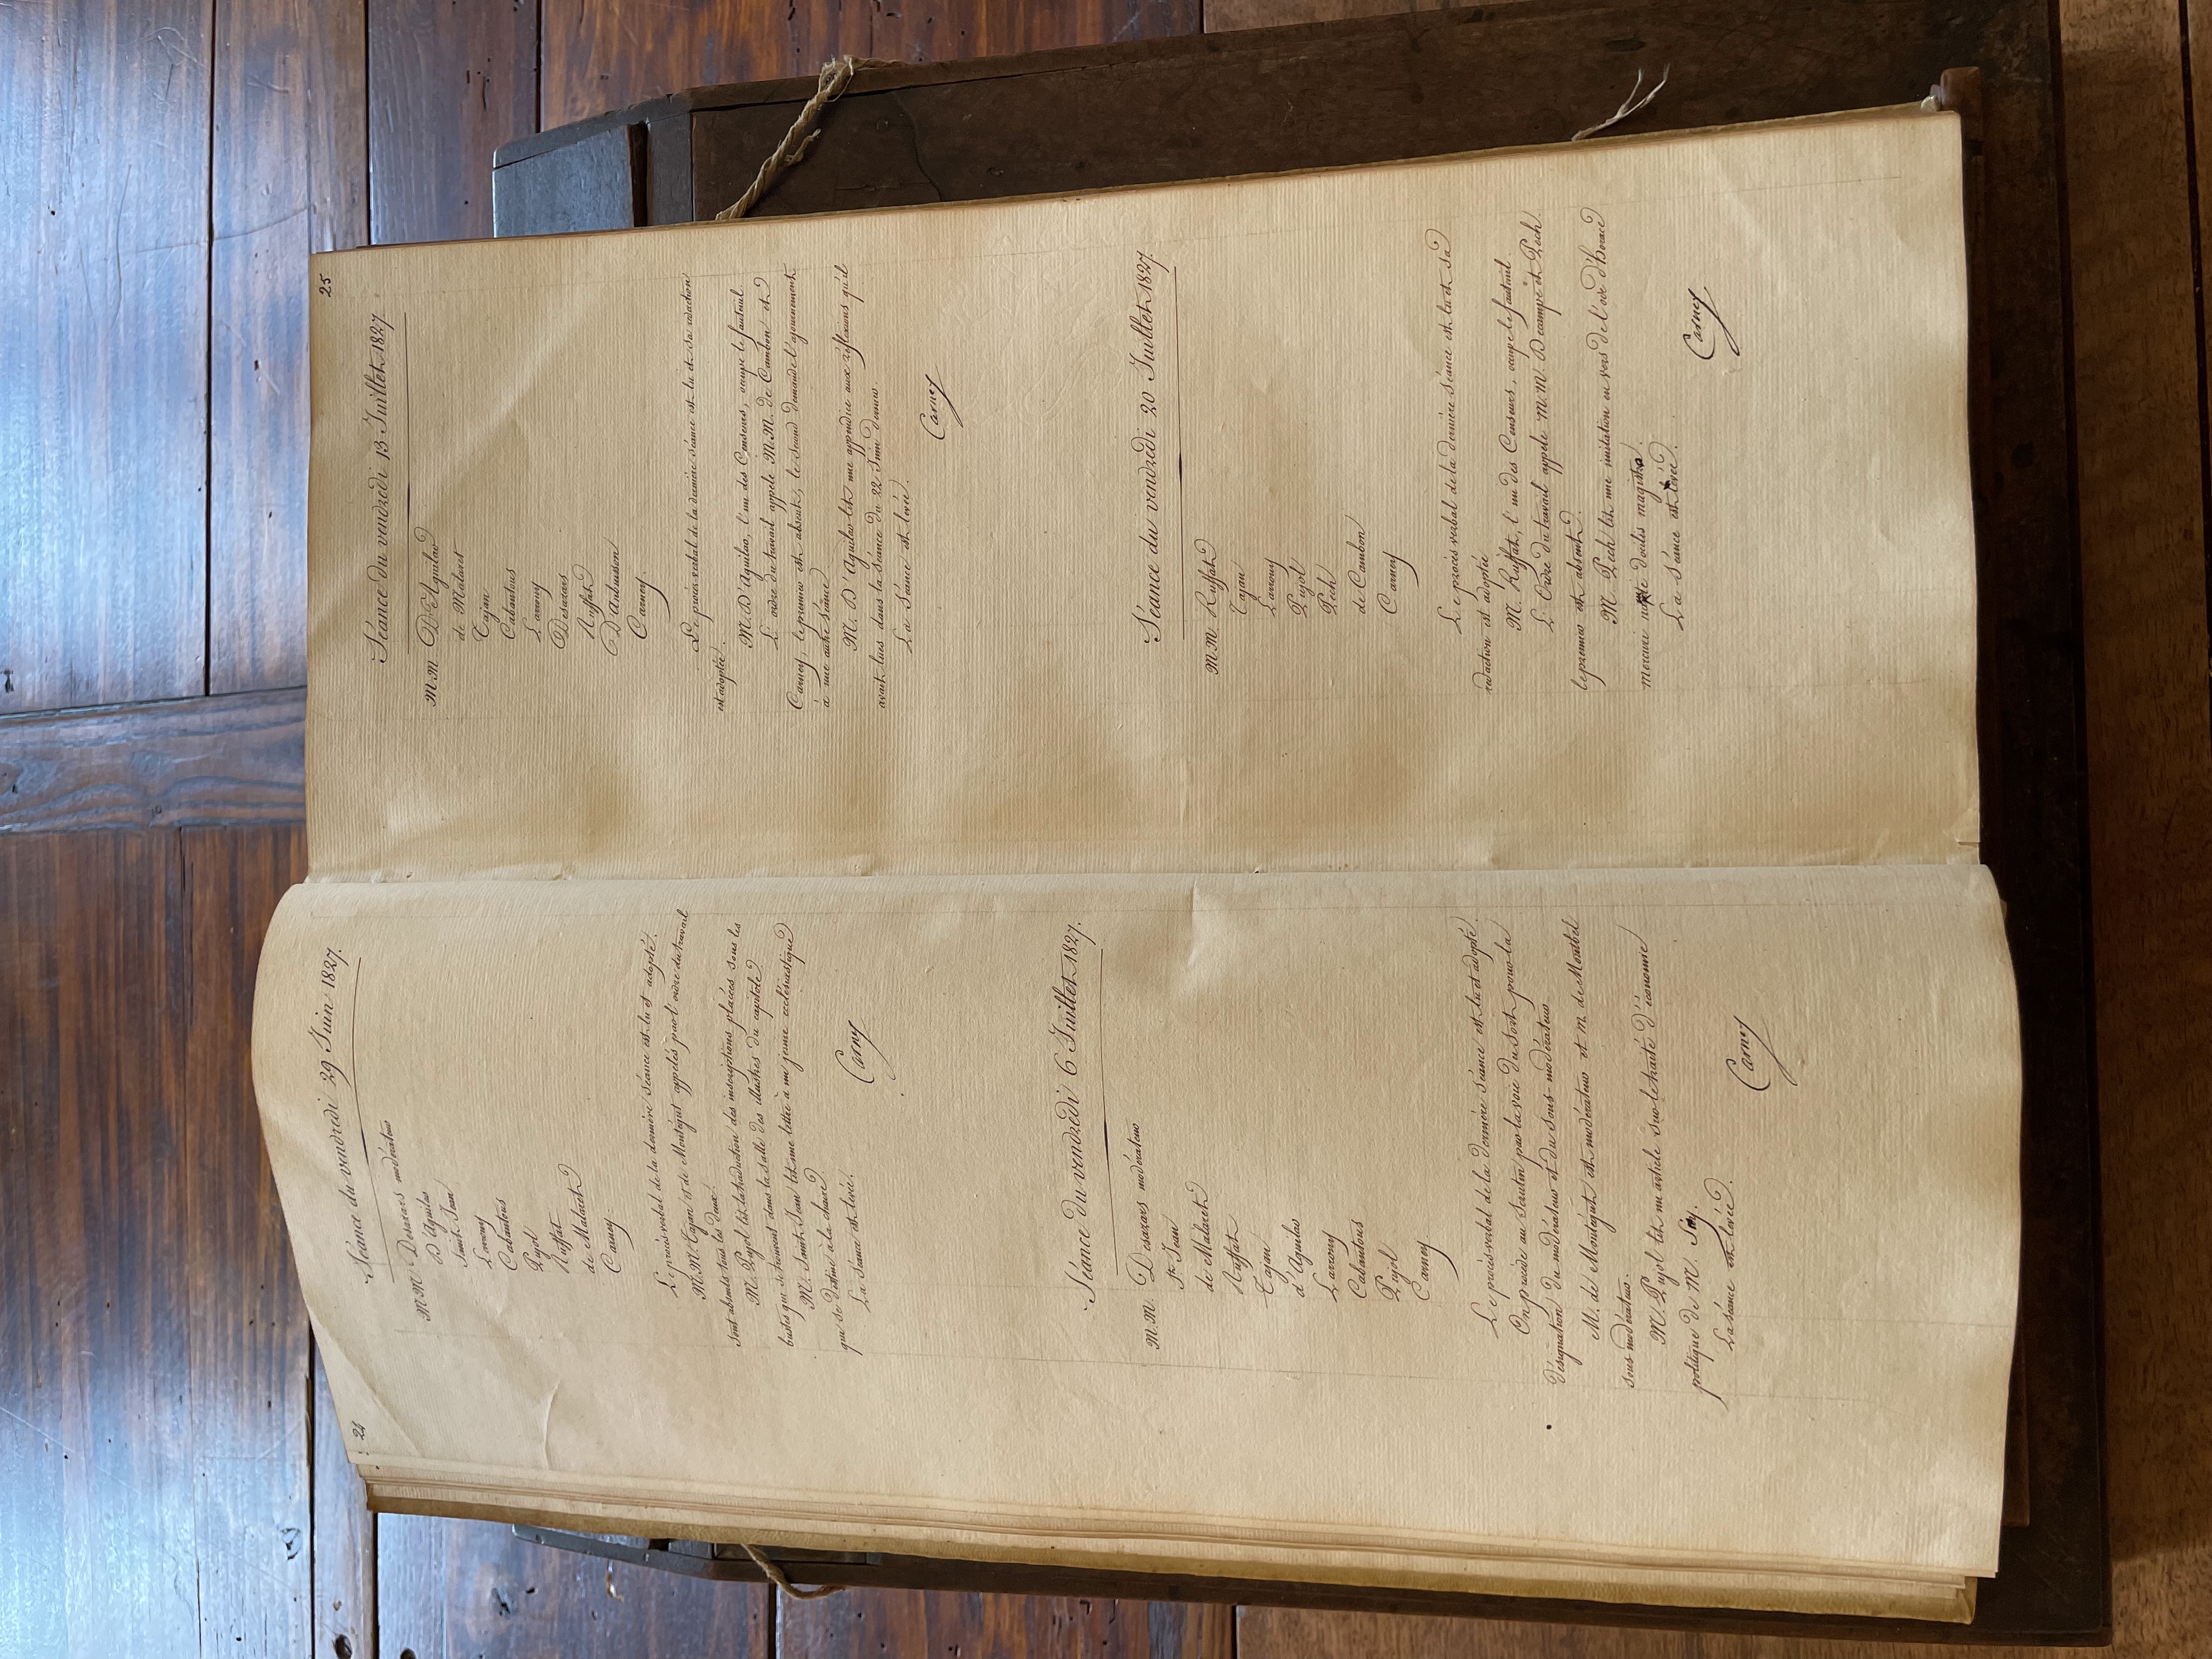 24
Séance du vendredi 29 Juin 1827.
M.M. Desazars modérateur
D'Aguilar
Saint-Jean
Larrouy
Cabantous
Pujol
Ruffat
de Malaret
Carney
Le procès verbal de la dernière séance est lu et adopté.
M.M. Tajan et de Montégut appelés par l'ordre du travail
sont absents tous les deux.
M. Pujol lit la traduction des inscriptions placées sous les
bustes qui se trouvent dans la salle des illustres du capitole.
M. Saint-Jean lit une lettre à un jeune ecclésiastique
qui se destine à la chaire.
La séance est levée.
Carney
Séance du vendredi 6 Juillet 1827.
M.M. Desazars modérateur
St Jean
de Malaret
Ruffat
Tajan
d'Aguilar
Larrouy
Cabantous
Pujol
Carney
Le procès verbal de la dernière séance est lu et adopté.
On procède au scrutin par la voie du sort pour la
désignation du modérateur et du sous-modérateur
M. de Montégut est modérateur et M. de Montbel
sous modérateur.
M. Pujol lit un article sur le traité d'économie
politique de M. Say.
La séance est levée.
Carney
25
Séance du vendredi 13 Juillet 1827
M.M. D'Aguilar
de Malaret
Tajan
Cabantous
Larrouy
Desazars
Ruffat
D'Aubuisson
Carney.
Le procès-verbal de la dernière séance est lu et sa rédaction
est adoptée.
M. D'Aguilar, l'un des Censeurs, occupe le fauteuil.
L'ordre du travail appele M.M. de Cambon et
Carney, le premier est absent, le second demande l'ajournement
à une autre séance
M. D'Aguilar lit une appendice aux réflexions qu'il
avait lues dans la séance du 22 Juin dernier.
La Séance est levée.
Carney
Séance du vendredi 20 Juillet 1827.
M.M. Ruffat
Tajan
Larrouy
Pujol
Pech
de Cambon
Carney
Le procès verbal de la dernière séance est lu et sa
rédaction est adoptée
M. Ruffat, l'un des Censeurs, occupe le fauteuil.
L'Ordre du travail appele M.M. Decampe et Pech.
le premier est absent.
M. Pech lit une imitation en vers de l'ode d'horace
mercuri docilis magistro.
La Séance est levée.
Carney